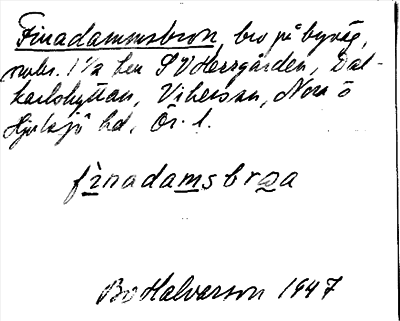 Finadammsbron, bro på byväg,
1 1/2 km SV Herrgården, Dal-
karlshyttan, Vikersvik, Nora o
Hjulsjö hd, Ör. l.
fìnadamsbroa
Bo Halvarson 1947